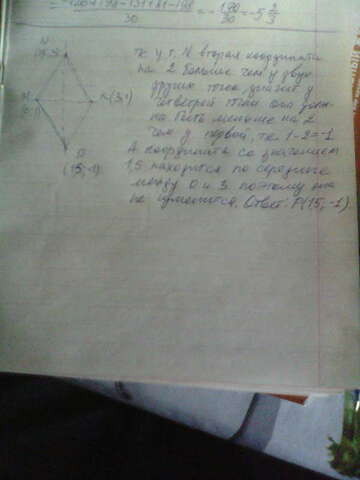 30
= -190/30 = -5 2/3
N
(1,5; 3)
M
(0; 1)
K(3; 1)
(1,5, -1)
тк у т. N вторая координата
на 2 больше чем у двух
других точек значит у
четверой точки она долж-
на быть меньше на 2
чем у первой, т.к 1-2=-1
А координата со значением
1,5 находится по середине
между 0 и 3. поэтому она
не изменится. Ответ: P(1,5, -1)